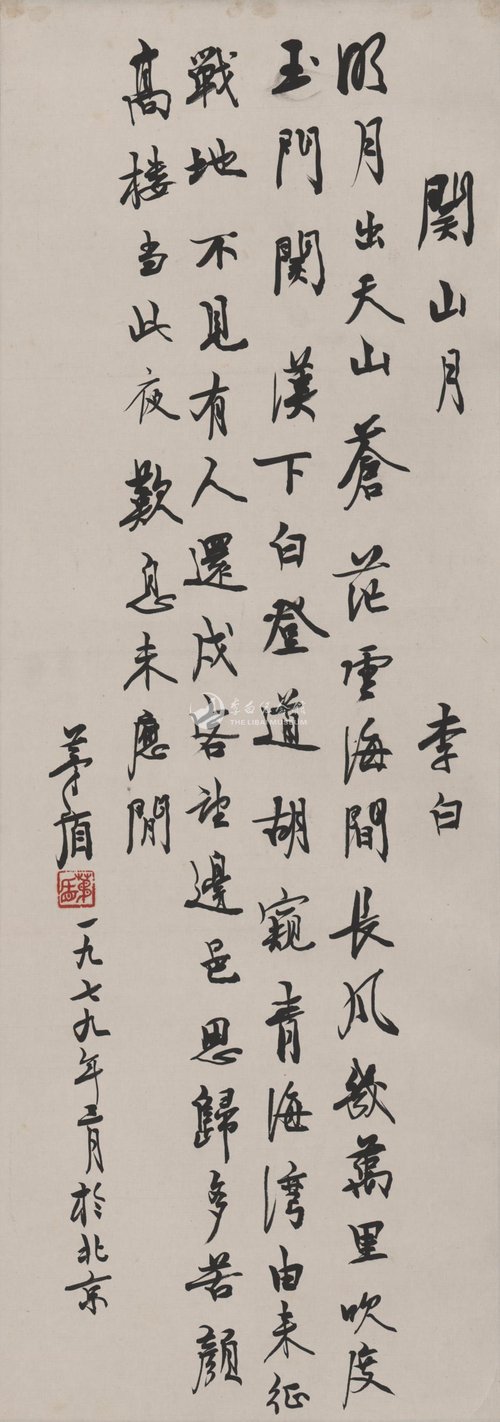 関山月　李白
明月出天山蒼茫雲海間長风幾萬里吹度
玉門関漢下白登道胡窺青海湾由来征
戰地不見有人還戍客望邊邑思歸多苦顏
高楼当此夜歎息未應閒
茅盾
一九七九年三月於北京
李白纪念馆
THE LIBAI MUSEUM